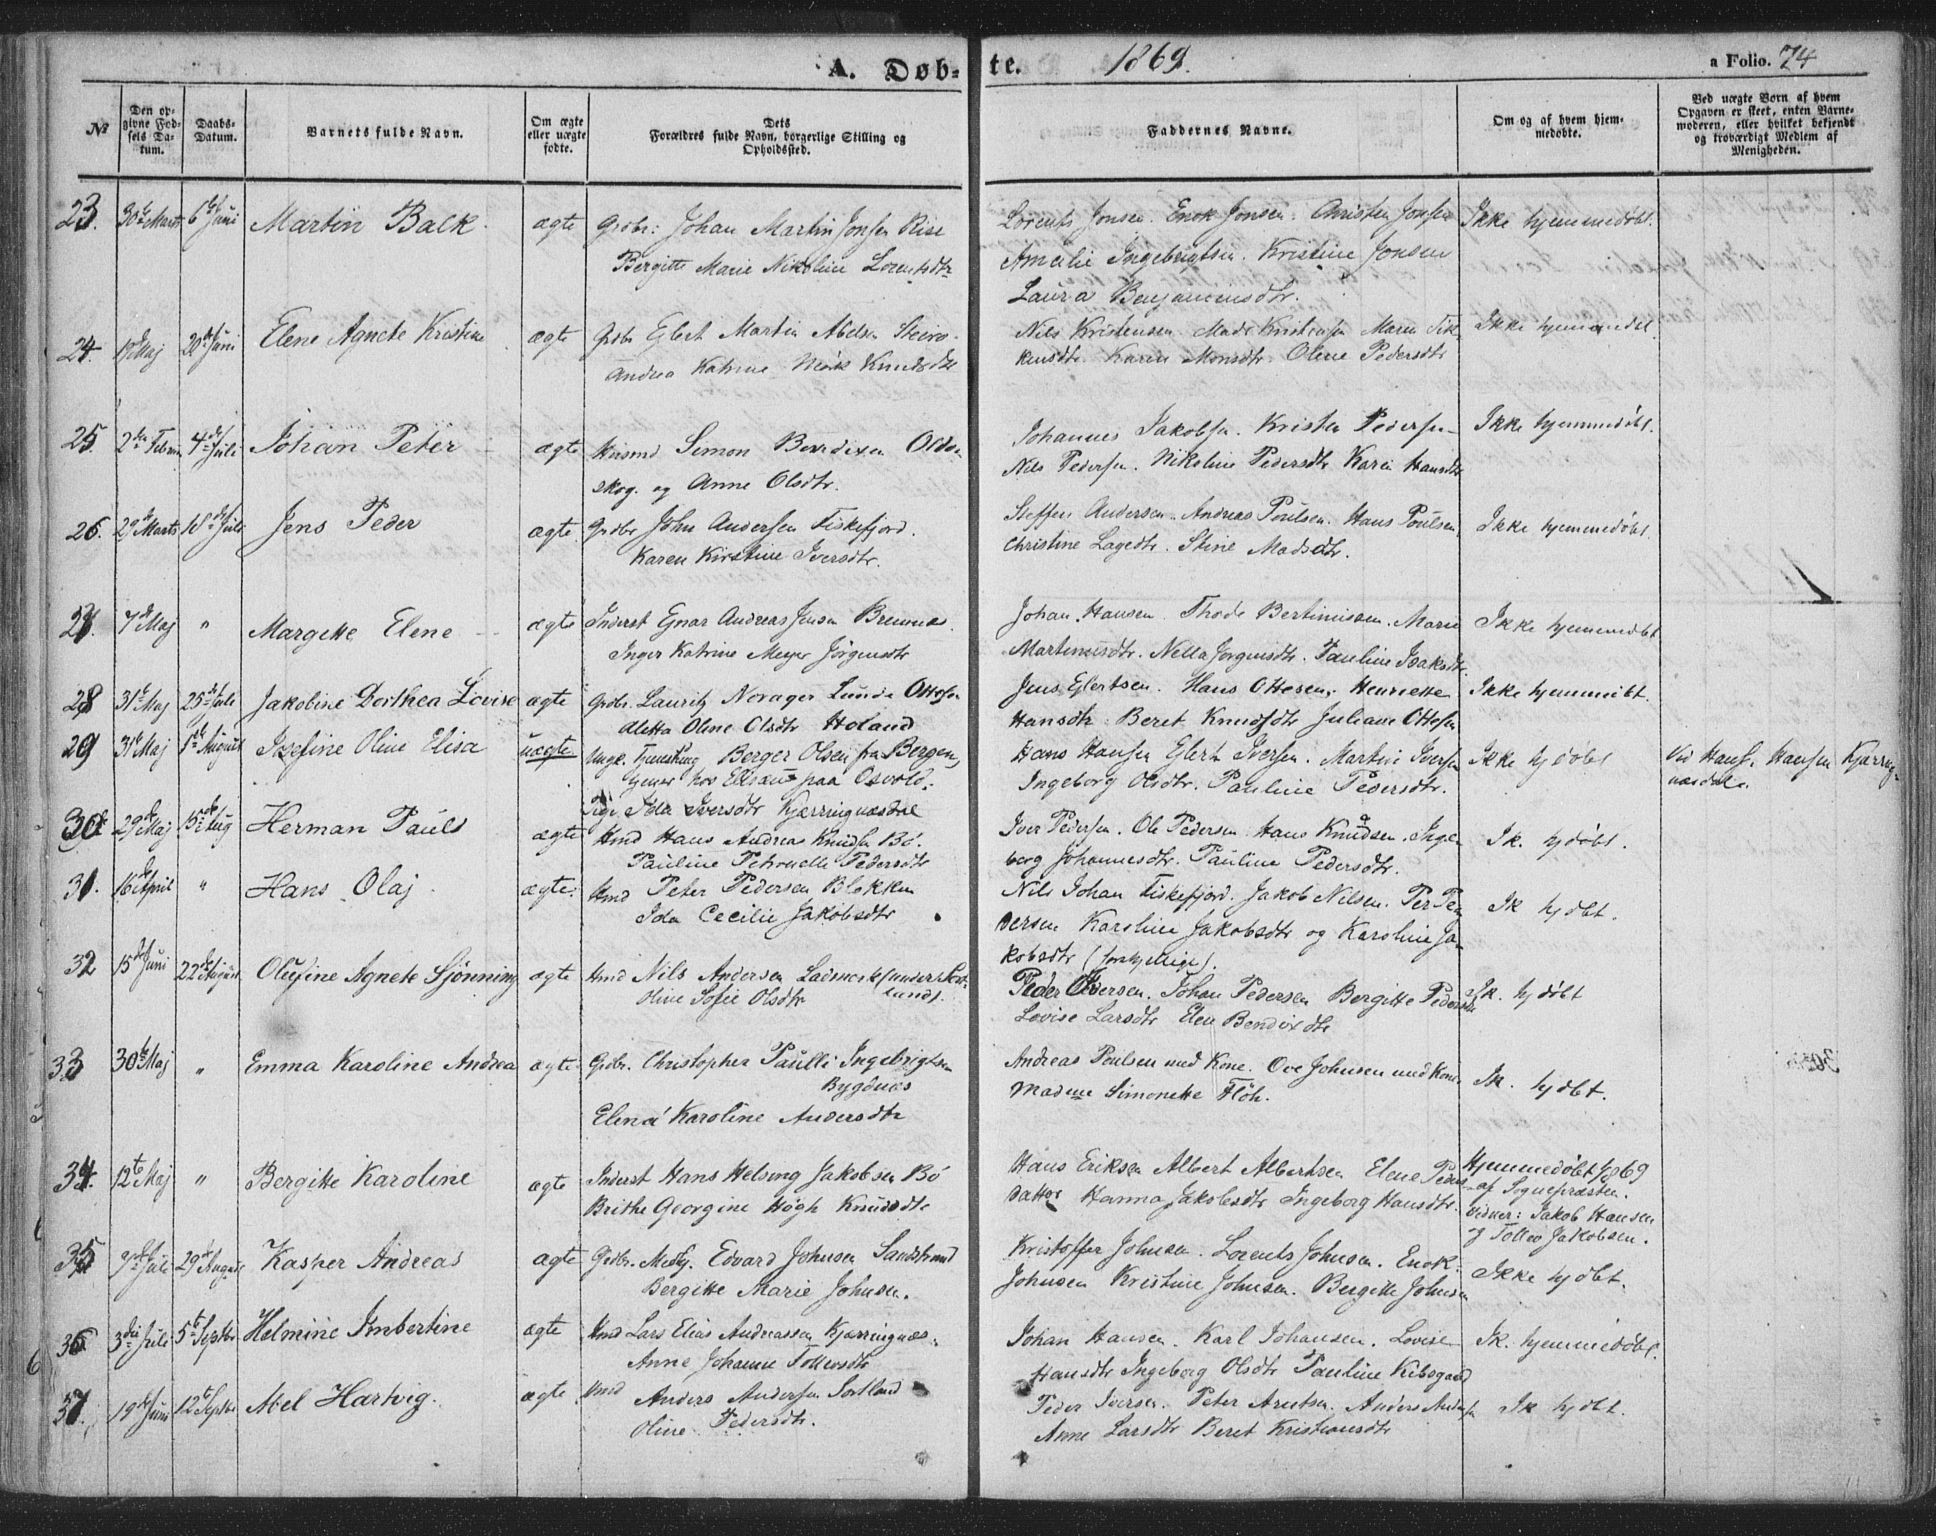 A. Døb-te. 1869. a Folio. 74
No
Den opgivne Fødsels Datum.
Daabs-Datum.
Barnets fulde Navn.
Om ægte eller uægte fødte.
Dets Forældres fulde Navn, borgerlige Stilling og Opholdssted.
Faddernes Navne.
Om og af hvem hjemmedøbte.
Ved uægte Børn af hvem Opgaven er skeet, enten Barnemoderen, eller hvilket bekjendt og troværdigt Medlem af Menigheden.
23. 30te Marts 6te Juni Martin Balk ægte Grdbr: Johan Martin Jonsen Rise
Bergitte Marie Nikoline Lorentsdtr
Lorents Jonsen. Enok Jonsen. Christen Jonsen Ikke hjemmedøbt.
Amalie Ingebrigtsen. Kristine Jonsen
Laura Benjaminsdtr.
24. Maj 20de Juni Elene Agnete Kristine ægte Grdbr Elert Martin Abelsen
Andrea Katrine Mørk Knudsdtr
Nils Kristensen Mads Kristensen Maren
Karen Monsdtr. Olene Pedersdtr
25. 2den Febru 4de Juli Johan Peter ægte Husmd Simon Bendixen
skog. og Anne Olsdtr.
Johannes Jakobsen. Kristen Pedersen Ikke hjemmedøbt.
Nils Pedersen. Nikoline Pedersdtr Karen Hansdtr
26. 29de Marts 18de Juli Jens Peder ægte. Grdbr John Andersen Fiskefjord.
Karen Kirstine Iversdtr.
Steffen Andersen. Andreas Poulsen. Hans Poulsen Ikke hjemmedøbt.
Christine Lagedtr. Stine Madsdtr.
27. 7de Maj " Margette Elene ægte Inderst Ejnar Andreas Jensen Bremnes.
Inger Katrine Meyer Jørgensdtr
Johan Hansen. Thode Bertinussen. Marie Ikke hjemmedøbt
Martinusdtr. Nella Jørgensdtr. Pauline Isaksdtr.
28 31te Maj 25de Juli Jakobine Dorthea Lovise ægte Grdbr. Lauritz Norager Lunde Ottesen
Aletta Oline Olsdtr Holand
Jens Elertsen. Hans Ottesen, Henriette
Hansdtr. Beret Knudsdtr Juliane Ottesen
29 31te Maj 1ste August Josefine Oline Elisa uægte Ungk. Berger Olsen fra Bergen,
paa Osvold.
Pige Ida Iversdtr Kjørringnæsdal
Hans Hansen Elert Iversen. Martin Iversen Ikke hjdøbt
Ingeborg Olsdtr. Pauline Pedersdtr.
Vid Hans Hansen Kjørringnæsdal.
30. 29de Maj 15de Aug Herman Pauls ægte Hmd Hans Andreas Knudsen Bø.
Pauline Petrnelle Pedersdtr
Iver Pedersen. Ole Pedersen Hans Knudsen. Ingeborg Johannesdtr. Pauline Pedersdtr. Ik. hjdøbt.
31. 16de April " Hans Olaj ægte. Hmd Peter Pedersen Blokken
Ida Cecilie Jakobsdtr
Nils Johan Fiskefjord. Jakob Nilsen. Per Pedersen Karoline Jakobsdtr og Karoline Jakobsdtr (forskjellige). Ik hjdbt.
32 15de Juni 22de August Olufine Agnete Sjønning ægte Hmd Nils Andersen
Oline Sofie Olsdtr
Peder Iversen. Johan Pedersen Bergitte Pedersdtr Ik. hjdøbt
Lovise Larsdtr Elen Bendixdtr
33 30te Maj " Emma Karoline Andrea ægte Grdbr. Christopher Paulli Ingebrigtsen
Bygdnæs
Elena Karoline Andersdtr
Andreas Poulsen med Kone. Ove Johnsen med Kone Ik. hjdbt.
Madme Simonette Fløh.
34. 12te Maj " Bergitte Karoline ægte Inderst Hans Helsing Jakobsen Bø
Brithe Georgine Høgh Knudsdtr
Hans Eriksen Albert Albertsen Elene Pedersdatter Hanna Jakobsdtr Ingeborg Hansdtr.
Hjemmedøbt
af Sognepræsten.
Vidner: Jakob Hansen
og Tollev Jakobsen.
35 Juli 29de August Kasper Andreas ægte Grdbr. Medhj. Edvard Johnsen Sandstrand
Bergitte Marie Johnsen.
Kristoffer Johnsen. Lorents Johnsen. Enok Johnsen Kristine Johnsen. Bergitte Johnsen Ikke hjdbt.
36 3die Juli 5te Septbr Helmine Imbertine ægte Hmd Lars Elias Andreassen Kjørringnæs.
Anne Johanne Tollevsdtr
Johan Hansen. Karl Johansen. Lovise Ik. hjemmedøbt.
Hansdtr Ingeborg Olsdtr Pauline Kibsgaard
37. 19de Juni 12te Septbr Abel Hartvig. ægte Hmd Anders Andersen Sortland
Oline Pedersdtr.
Peder Iversen. Peter Arntsen. Anders Andersen Ik hjdbt.
Anne Larsdtr Beret Kristiansdtr